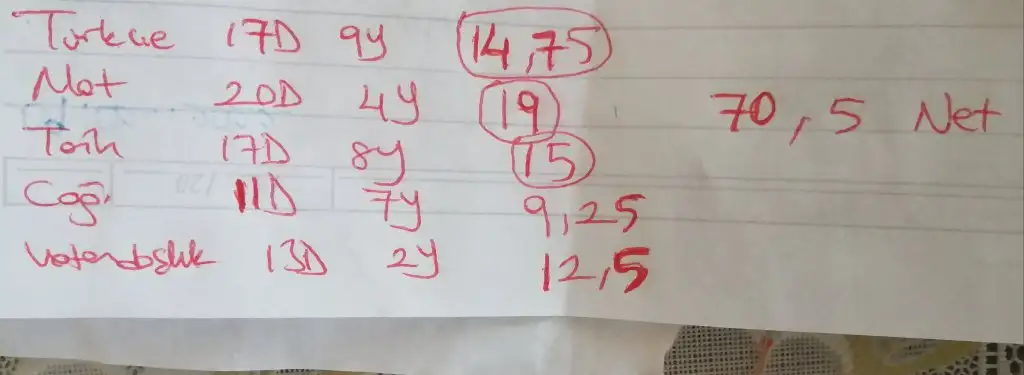 Türkçe 17D 9y 14,75
Mat 20D 4y 19
70,5 Net
Tarih 17D 8y 15
Coğ. 11D 7y 9,25
Vatandaşlık 13D 2y 12,5